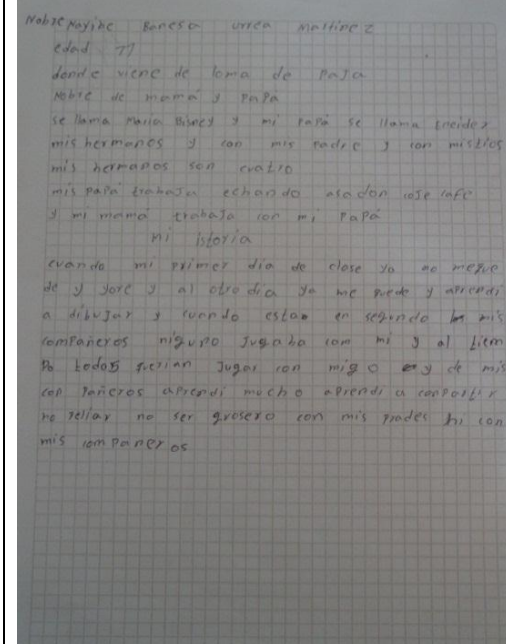 Nobre Mayine Banesa urrea Martinez
edad 11
donde viene de loma de paja
Nobre de mamá y papa
se llama Maria Bisney y mi papá se llama Eneider
mis hermanos y con mis padre y con mistios
mis hermanos son cuatro
mis papá trabaja echando asadon cose cafe
y mi mamá trabaja con mi papá
mi istoria
cuando mi primer dia de clase yo no meque
de y yore y al otro dia ya me quede y aprendi
a dibujar y cuando estao en segundo mis
compañeros niguno jugaba com mi y al tiem
po todos querian jugar con migo y de mis
con pañeros aprendi mucho aprendi a conpartir
no peliar no ser grosero con mis prades ni con
mis companeros